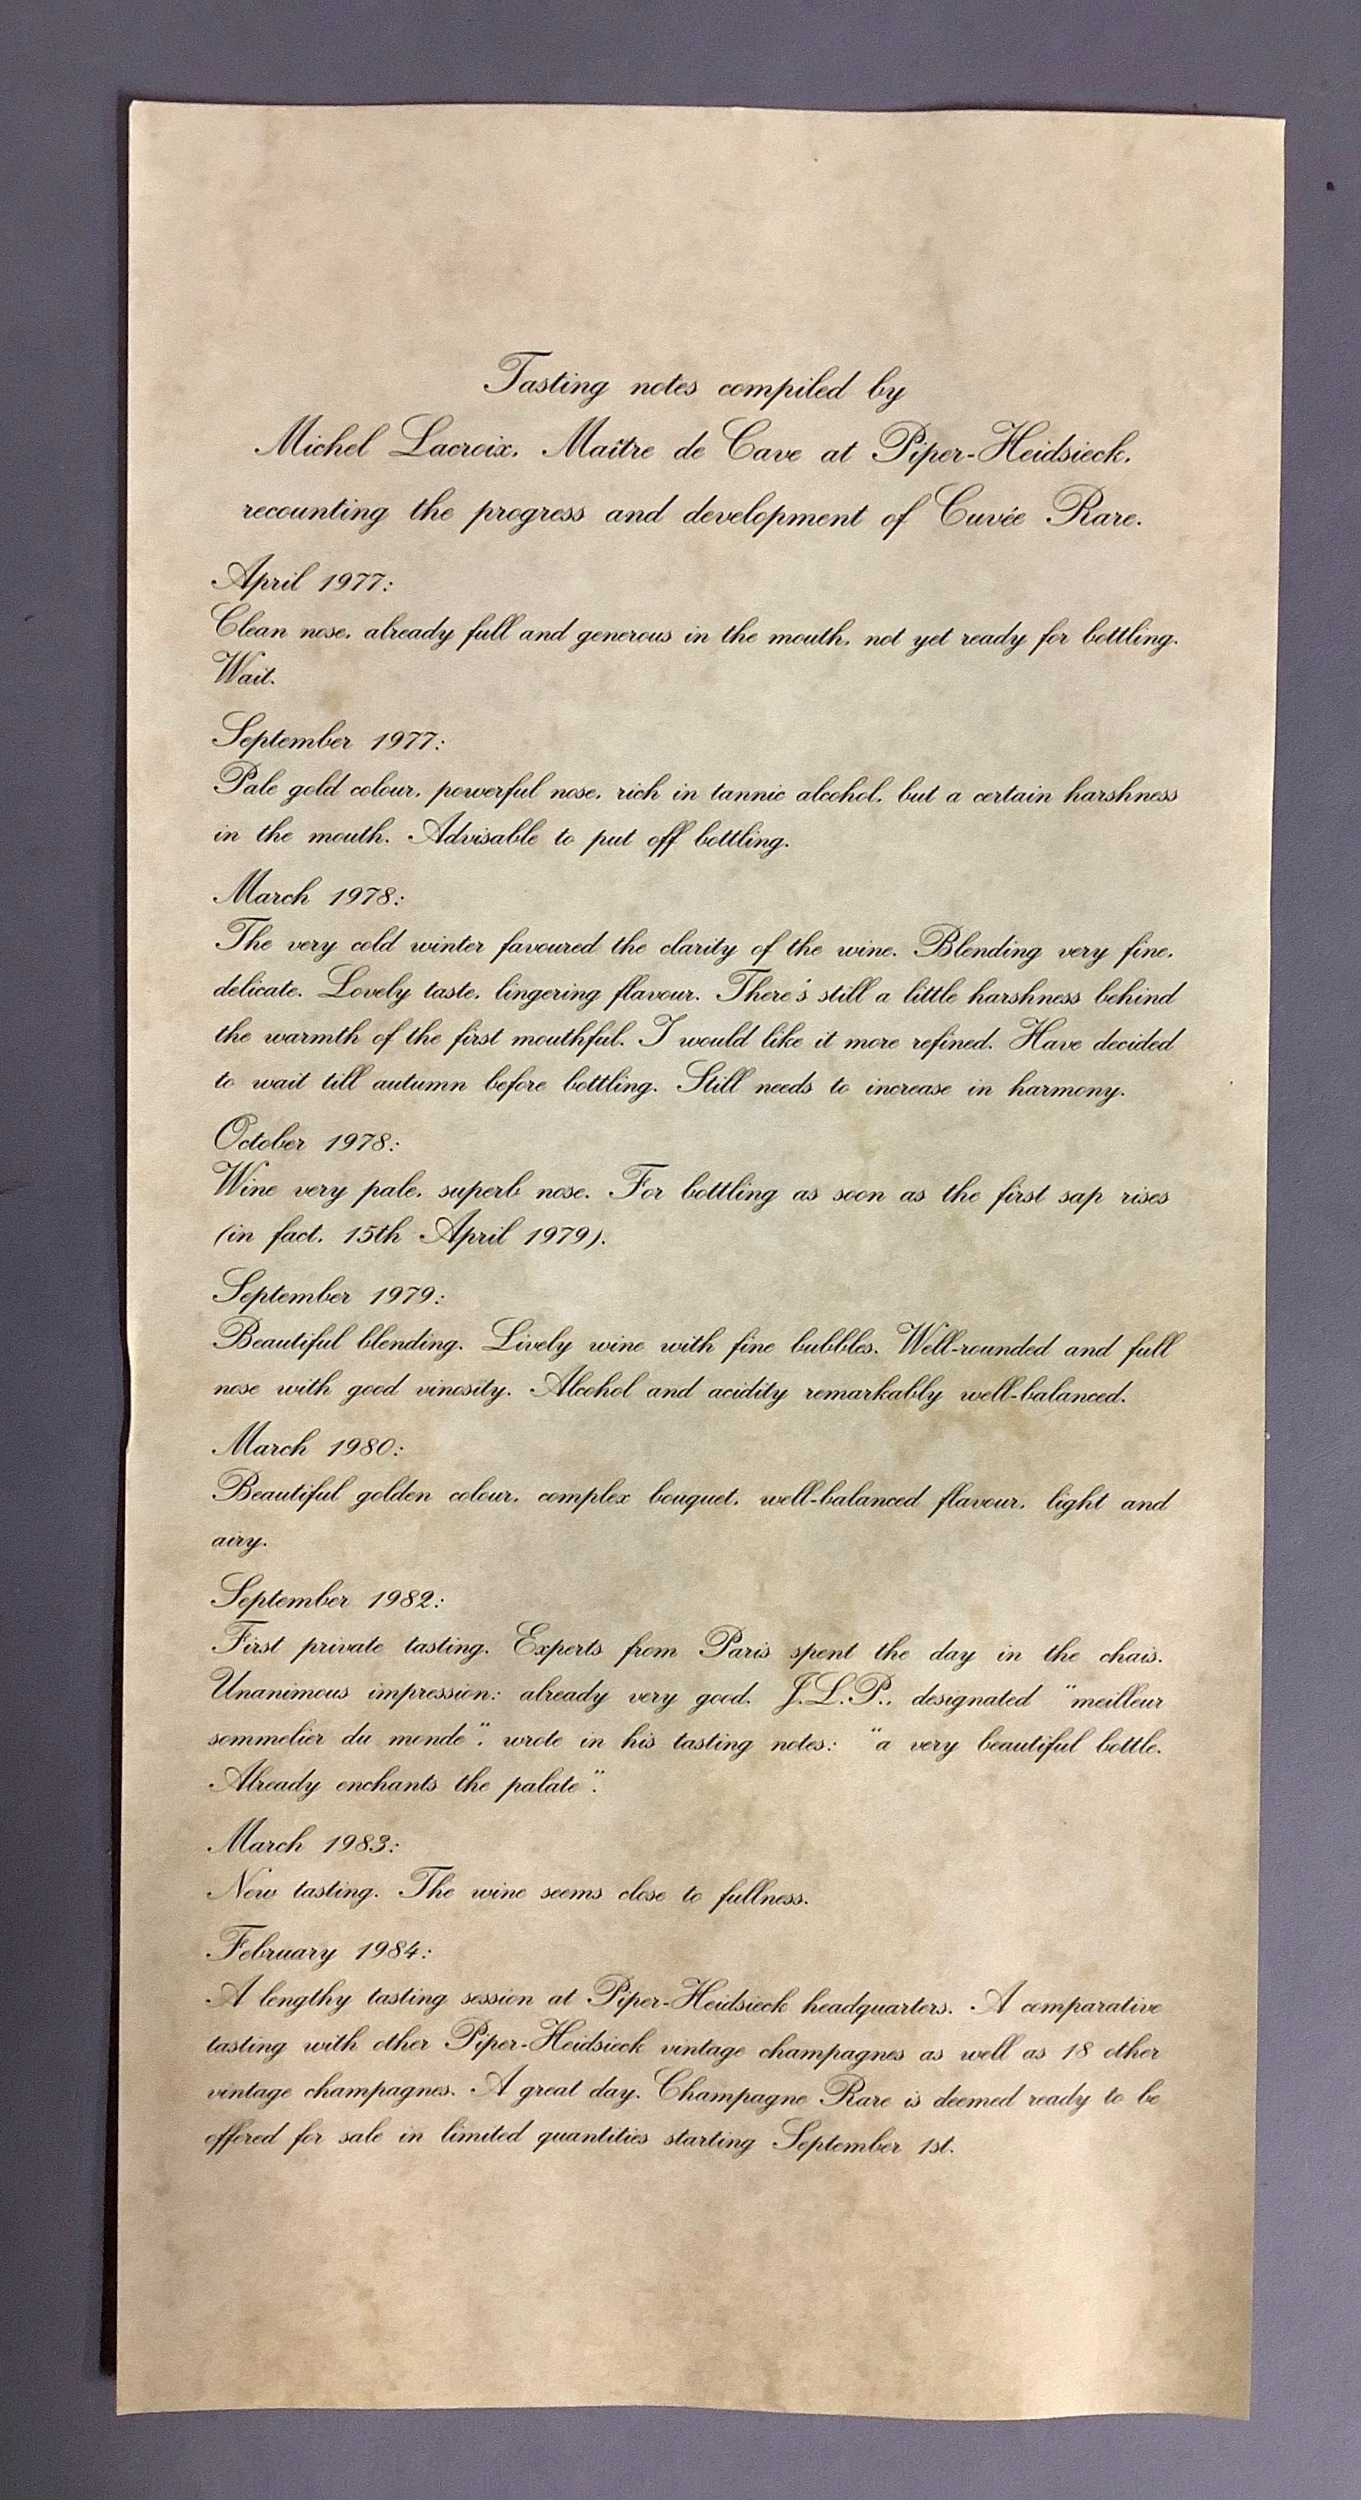 Tasting notes compiled by
Michel Lacroix, Maître de Cave at Piper-Heidsieck,
recounting the progress and development of Cuvée Rare.
April 1977:
Clean nose, already full and generous in the mouth, not yet ready for bottling.
Wait.
September 1977:
Pale gold colour, powerful nose, rich in tannic alcohol, but a certain harshness
in the mouth. Advisable to put off bottling.
March 1978:
The very cold winter favoured the clarity of the wine. Blending very fine,
delicate. Lovely taste, lingering flavour. There's still a little harshness behind
the warmth of the first mouthful. I would like it more refined. Have decided
to wait till autumn before bottling. Still needs to increase in harmony.
October 1978:
Wine very pale, superb nose. For bottling as soon as the first sap rises
(in fact, 15th April 1979).
September 1979:
Beautiful blending. Lively wine with fine bubbles. Well-rounded and full
nose with good vinosity. Alcohol and acidity remarkably well-balanced.
March 1980:
Beautiful golden colour, complex bouquet, well-balanced flavour, light and
airy.
September 1982:
First private tasting. Experts from Paris spent the day in the chais.
Unanimous impression: already very good. J.L.P., designated "meilleur
sommelier du monde", wrote in his tasting notes: "a very beautiful bottle.
Already enchants the palate".
March 1983:
New tasting. The wine seems close to fullness.
February 1984:
A lengthy tasting session at Piper-Heidsieck headquarters. A comparative
tasting with other Piper-Heidsieck vintage champagnes as well as 18 other
vintage champagnes. A great day. Champagne Rare is deemed ready to be
offered for sale in limited quantities starting September 1st.